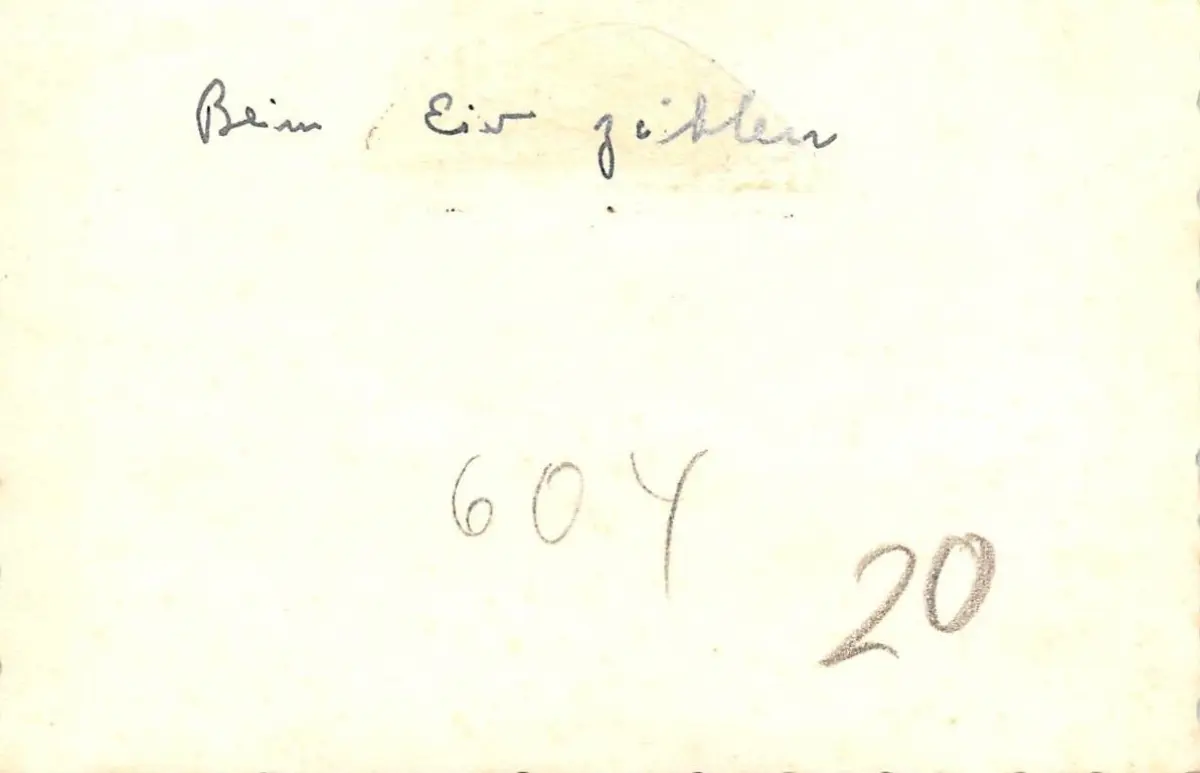 Beim Eier zählen
604
20